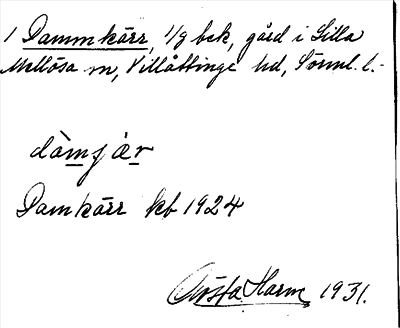 1 Dammkärr, 1/8 bek, gård i Lilla
Mellösa sn, Villåttinge hd, Sörml. l.-
dàmjár
Damkärr kb 1924
Gösta Harm 1931.